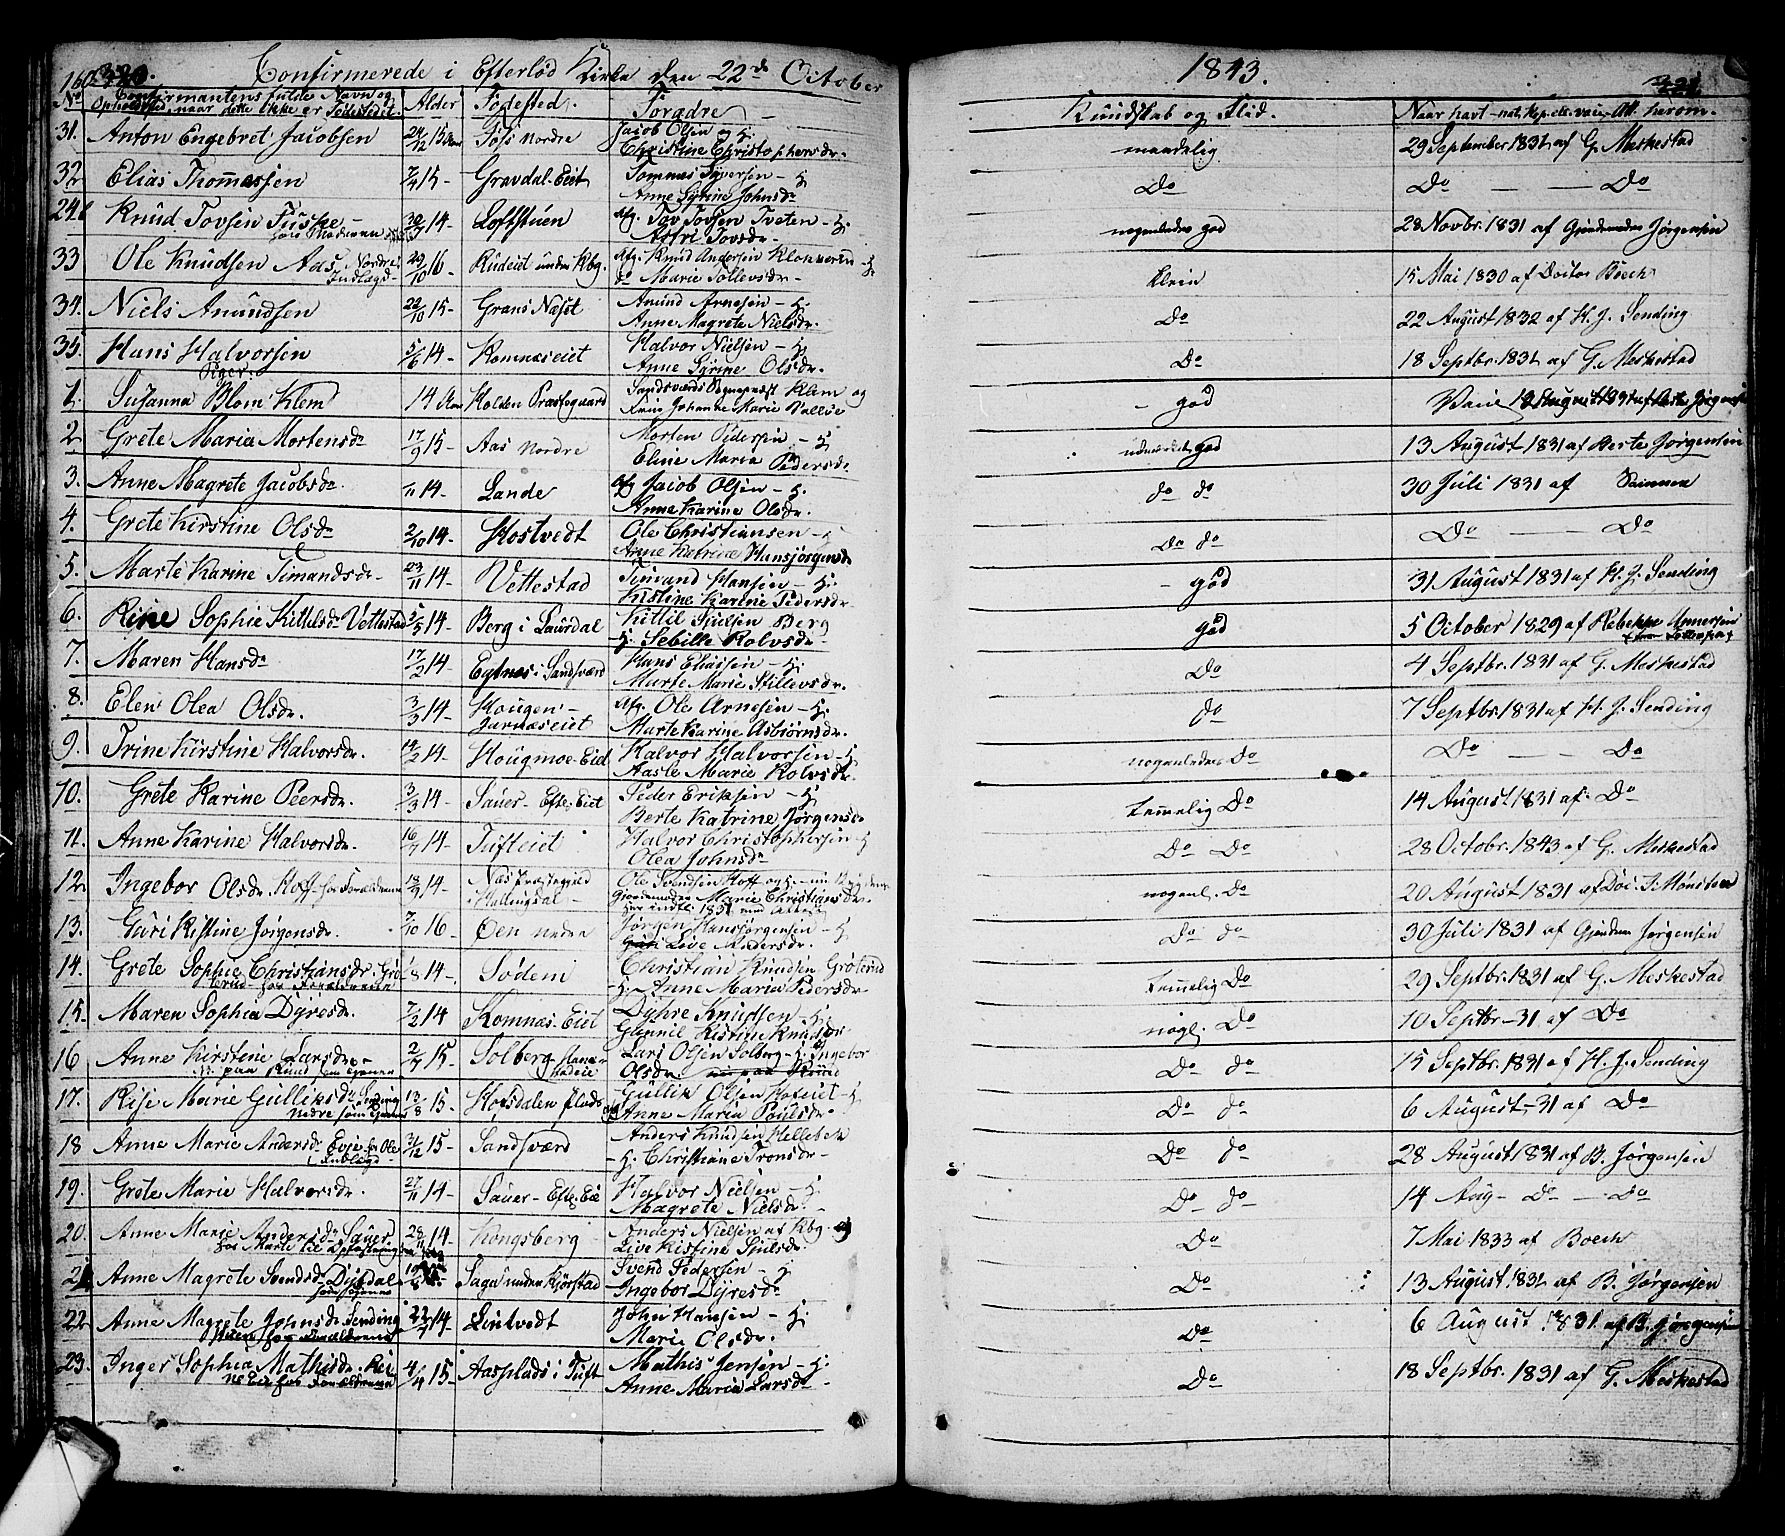 160 320. Confirmerede i Efterlød Kirke den 22de October 1843. 221.
No Confirmantens fulde Navn og Opholdsted, naar dette ikke er Fødestedet. Alder Fødested. Forældre Kundskab og Flid. Naar havt nat. Kop. ell. vacc. Att. herom.
31. Anton Engebret Jacobsen 24/12 15 Aar Føss Nordre Jacob Olsen og H. Christine Christophersdr. maadelig 29 September 1831 af G. Meskestad
32 Elias Thomassen 7/4 15 - Gravdal-Eiet Tommas Syversen - H. Anne Syrine Johnsdr Do Do - - Do
24 b Knud Tovsen Fiiske - hos Moderen 30/7 14 - Loftstuen afg. Tov Tovsen Tveten - H. Asfri Tovsdr. nogenledes god 28 Novbr. 1831 af Gjordemoder Jørgensen
33 Ole Knudsen Aas Nordre Indlagd - 29/10 16 - Rudeiet under Kbg. afg. Knud Andersen Klokkeren - H. do Marie Tollevsdr. klein 15 Mai 1830 af Doctor Boeck
34. Niels Anundsen 22/10 15 - Grans Næset Anund Arnesen - H. Anne Magrete Nielsdr. Do 22 August 1832 af H. J. Sending
35. Hans Halvorsen 5/6 14 - Komnæseiet Halvor Nielsen - H. Anne Syrine Olsdr. Do 18 Septbr. 1831 af G. Meskestad
Piger.
1. Susanna Blom Klem 14 Aar Holden Præstegaard Sandsværds Sognepræst Klem og Johanne Marie - god Vacc
2. Grete Maria Mortensdr 17/9 15 - Aas Nordre Morten Pedersen - H. Eline Maria Pedersdr udmærket god 13 August 1831 af Berte Jørgensen
3. Anne Magrete Jacobsdr. 1/11 14 - Lande afg Jacob Olsen - H. Anne Karine Olsdr. do do 30 Juli 1831 af Sammen
4. Grete Kirstine Olsdr 2/10 14 - Kostvedt Ole Christiansen - H Anne Katrine Hansjørgensdr Do do Do - - Do
5. Marte Karine Timandsdr. 23/11 14 - Vettestad Timand Hansen - H. Kistine Karine Pedersdr. - god 31 August 1831 af H. J. Sending
6. Rine Sophie Kittelsdr Vettestad 5/5 14 - Berg i Laurdal Kittil Sjulsen Berg H. Sebille Rolvsdr - god 5 October 1829 af Rebekke Annersen
7. Maren Hansdr 17/2 14 - Egtnes i Sandsværd Hans Eliassen - H. Marte Marie Stillevsdr. Do 4 Septbr. 1831 af G. Meskestad
8. Elen Olea Olsdr. 3/3 14 - Hougen - Jarnæseiet afg. Ole Arnesen - H. Marte Karine Asbjørnsdr. do 7 Septbr 1831 af H. J. Sending
9. Trine Kirstine Halvorsdr. 14/2 14 - Hougmoe-Eiet Halvor Halvorsen - H Aasle Marie Rolvsdr. nogenledes Do Do - - Do
10. Grete Karine Peersdr. 3/3 14 - Sauer - Efte: Eiet Peder Eriksen - H. Berte Katrine Jørgensdr temmelig Do 14 August 1831 af Do
11. Anne Karine Halvorsdr. 16/7 14 - Tufteiet Halvor Christophersen - H Olea Johnsdr Do Do 28 Octobr. 1843 af G. Meskestad
12. Ingebor Olsdr Hoff - hos Forældrene 13/9 14 - Næs Præstegjeld i Hallingdal - Ole Svendsen Hoff og H. Marie Christiansdr nogenl. Do 20 August 1831 af Doc. T. Mønsteen
13. Guri Kistine Jørgensdr. 7/10 16 - Øen nedre Jørgen Hansjørgensen - H Live Andersdr. Do do 30 Juli 1831 af Gjordem Jørgensen
14. Grete Sophie Christiansdr. Grøterud - hos Forældrene 14 - Sødem Christian Knudsen Grøterud H. Anne Maria Pedersdr temmelig Do 29 Septbr. 1831 af G. Meskestad
15. Maren Sophia Dyresdr. 7/2 14 Komnæs-Eiet Dyhre Knudsen - H. Gunnil Kistine Knudsdr nogl. Do 10 Septbr - 31 af Do
16 Anne Kirstine Larsdr. - paa Rund 2/7 15 - Solberg Lars Olsen Solberg - H. Ingebor Olsdr Do do 15 Septbr. 1831 af H. J. Sending
17. Rise Marie Gulliksdr 13/8 15 - Korsdalen Gullik Olsen Hofeiet - H Anne Maria Povlsdr - Do do 6 August - 31 af Do
18 Anne Marie Andersdr Evje Indlagd - 31/12 15 - Sandsværd Anders Knudsen Hellebek - H. Christiane Tronsdr - Do do 28 August 1831 af B. Jørgensen
19. Grete Marie Halvorsdr. 27/11 14 - Sauer - Efte Eie Halvor Nielsen - H. Magrete Nielsdr. Do do 14 Aug - Do - Do
20. Anne Marie Andersdr Sauer hos Marte til Opfostring 28/11 14 - Kongsberg Anders Nielsen af Kbg. og Live Kistine Sjulsdr. Do 7 Mai 1833 af Boeck
21 Anne Magrete Svendsdr Dyrdal Saga under Kjørstad Svend Pedersen - H Ingebor Dyresdr Do 13 August 1831 af B. Jørgensen
22 Anne Magrete Johnsdr Sending hos Forældrene 22/7 14 Lintvedt John Hansen - H. Marie Olsdr. Do 6 August 1831 af B. Jørgensen
23. Inger Sophia Mathisdr. hos Forældrene 4/4 15 - Aasplads i Tuft Mathis Jensen - H. Anne Maria Larsdr - Do 18 Septbr. 1831 af G. Meskestad